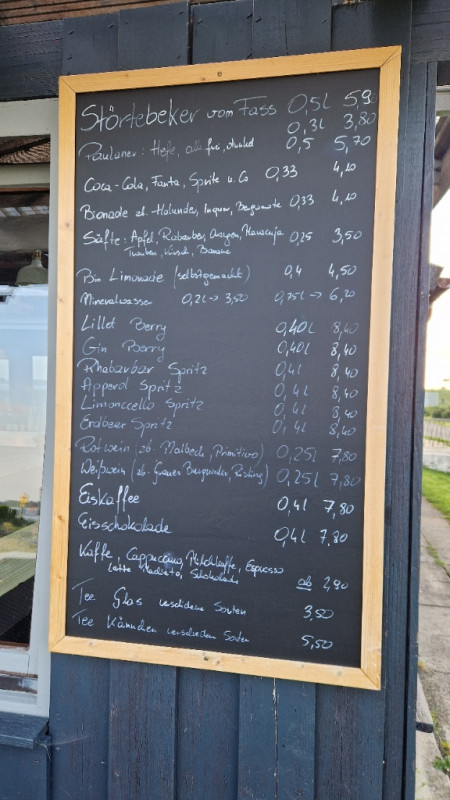 Störtebeker vom Fass 0,5l 5,9
0,3l 3,80
Paulaner: Hefe, alk frei, dunkel 0,5 5,70
Coca-Cola, Fanta, Sprite u. Co 0,33 4,10
Bionade zb. Holunder, Ingwer, Bergamote 0,33 4,10
Säfte: Apfel, Rabarber, Orangen, Maracuja 0,25 3,50
Trauben, Kirsch, Banane
Bio Limonade (selbstgemacht) 0,4 4,50
Mineralwasser 0,2l → 3,50 0,75l → 6,20
Lillet Berry 0,40l 8,40
Gin Berry 0,40l 8,40
Rhabarbar Spritz 0,4l 8,40
Apperol Spritz 0,4l 8,40
Limonccello Spritz 0,4l 8,40
Erdbeer Spritz 0,4l 8,40
Rotwein (zb. Malbech, Primitivo) 0,25l 7,80
Weißwein (zb. Grauer Burgunder, Risling) 0,25l 7,80
Eiskaffee 0,4l 7,80
Eisschokolade 0,4l 7,80
Kaffe, Cappuccino, Milchkaffe, Espresso
Latte Machiato, Schokolade ab 2,90
Tee Glas verschidene Sorten 3,50
Tee Kännchen verschieden Sorten 5,50